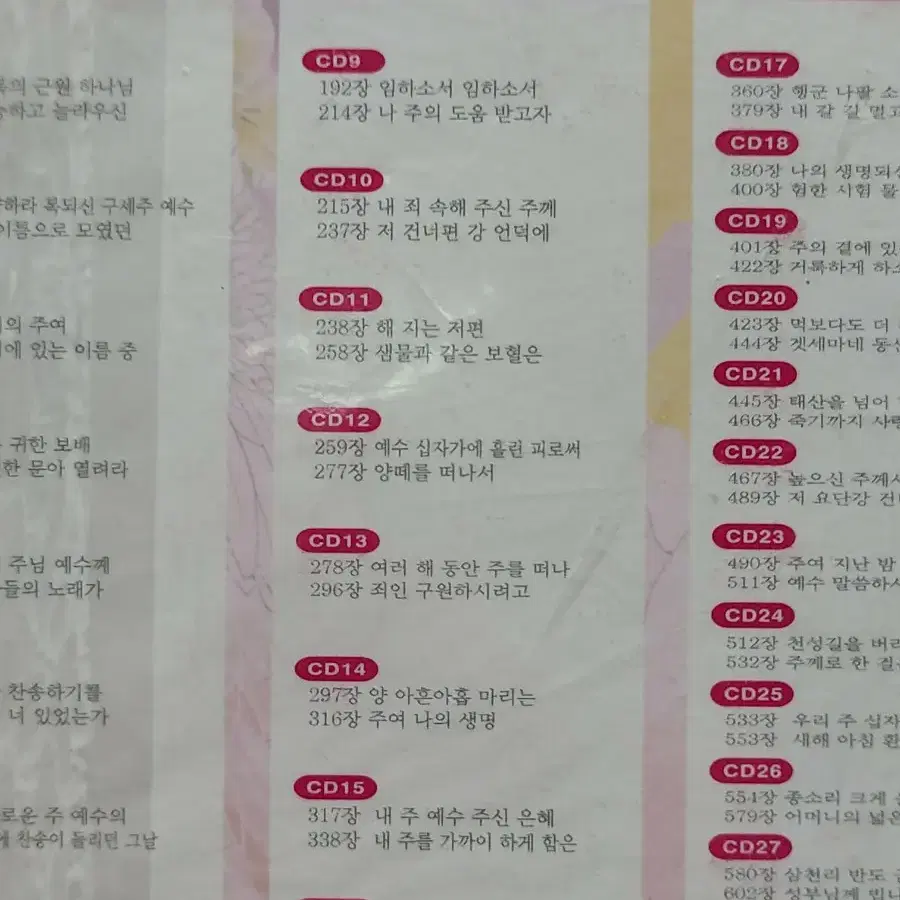 근원 하나님
놀라우신
복되신 구세주 예수
이름으로 모였던
주여
있는 이름 중
귀한 보배
문아 열려라
주님 예수께
노래가
찬송하기를
너 있었는가
주 예수의
찬송이 들리던 그날
CD9
192장 임하소서 임하소서
214장 나 주의 도움 받고자
CD10
215장 내 죄 속해 주신 주께
237장 저 건너편 강 언덕에
CD11
238장 해 지는 저편
258장 샘물과 같은 보혈은
CD12
259장 예수 십자가에 흘린 피로써
277장 양떼를 떠나서
CD13
278장 여러 해 동안 주를 떠나
296장 죄인 구원하시려고
CD14
297장 양 아흔아홉 마리는
316장 주여 나의 생명
CD15
317장 내 주 예수 주신 은혜
338장 내 주를 가까이 하게 함은
CD17
360장 행군 나팔
379장 내 갈 길 멀고
CD18
380장 나의
400장 험한 시험
CD19
401장 주의 곁에
422장 거룩하게
CD20
423장 먹보다도 더
444장 겟세마네
CD21
445장 태산을 넘어
466장 죽기까지
CD22
467장 높으신
489장 저 요단강
CD23
490장 주여 지난 밤
511장 예수
CD24
512장 천성길을
532장 주께로 한
CD25
533장 우리 주
553장 새해 아침
CD26
554장 종소리 크게
579장 어머니의
CD27
580장 삼천리 반도
602장 성부님께